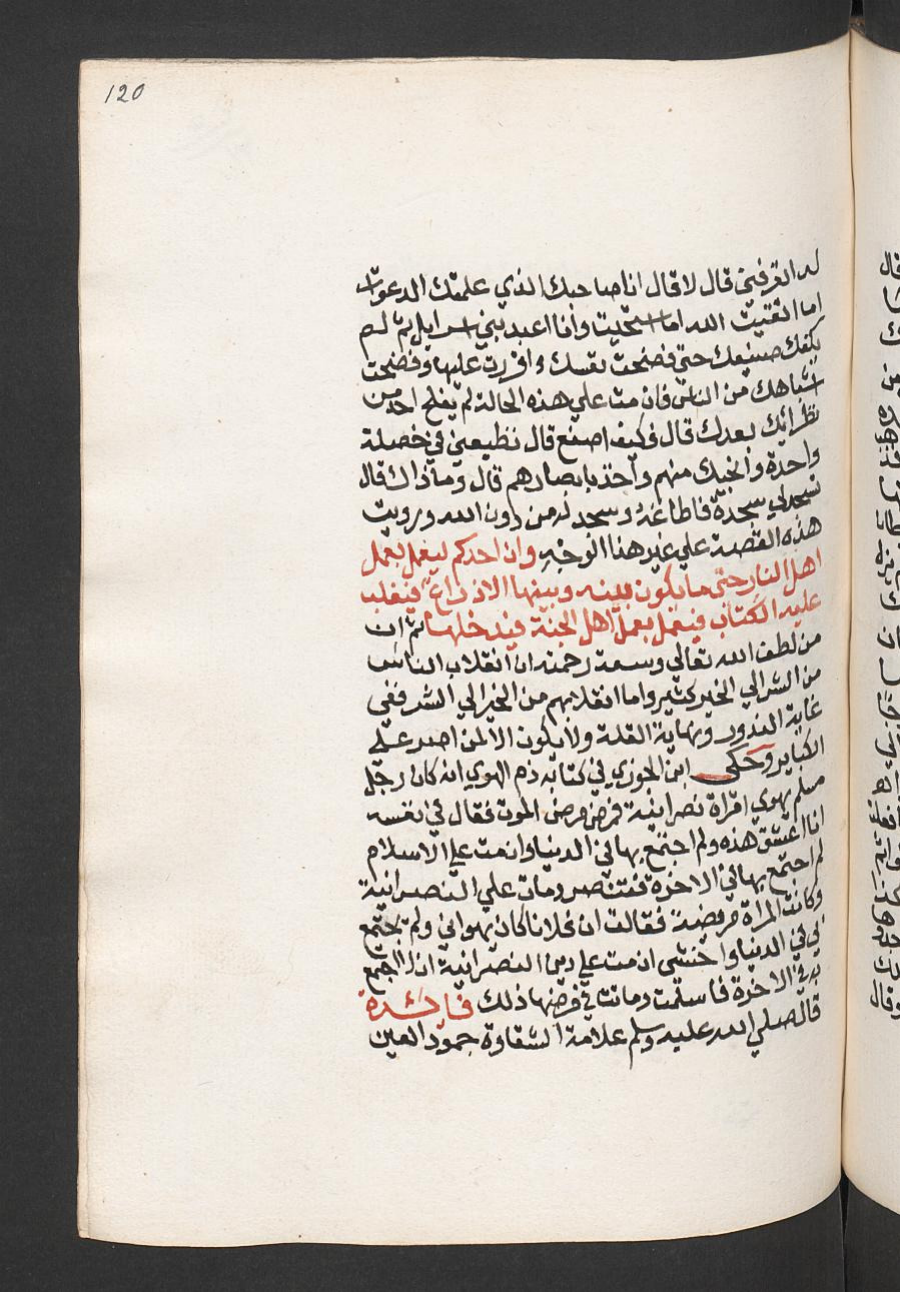 120
له اتعرفني قال لا قال انا صاحبك الذي علمتك الدعوات
اما اتقيت الله اما استحيت وانا اعبد بني اسرايل ثم لم
يكفك صنيعك حتى فضحت نفسك واقررت عليها وفضحت
اشباهك من الناس فان مت علي هذه الحالة لم يفلح احد من
نظرائك بعدك قال فكيف اصنع قال تطيعني في خصلة
واحدة وانجيك منهم وآخذ بابصارهم قال وما ذاك قال
تسجد لي سجدة فاطاعه وسجد له من دون الله ورويت
هذه القصة علي غير هذا الوجه وان احدكم ليعمل بعمل
اهل النار حتى ما يكون بينه وبينها الا ذراع فيغلب
عليه الكتاب فيعمل بعمل اهل الجنة فيدخلها ثم ان
من لطف الله تعالي وسعة رحمته ان انقلاب الناس
من الشر الي الخير كثير واما انقلابهم من الخير الي الشر ففي
غاية الندور ونهاية القلة ولا يكون الا لمن اصر علي
الكباير وحكى ابن الجوزي في كتابه ذم الهوي انه كان رجل
مسلم يهوي امراة نصرانية فمرض مرض الموت فقال في نفسه
انا اعشق هذه ولم اجتمع بها في الدنيا وان مت علي الاسلام
لم اجتمع بها في الاخرة فتنصر ومات علي النصرانية
وكانت المراة مريضة فقالت ان فلانا كان يهواني ولم يجتمع
بي في الدنيا واخشى ان مت علي دين النصرانية ان لا اجتمع
به في الاخرة فاسلمت وماتت في مرضها ذلك فايدة
قال صلي الله عليه وسلم علامة الشقاوة جمود العين